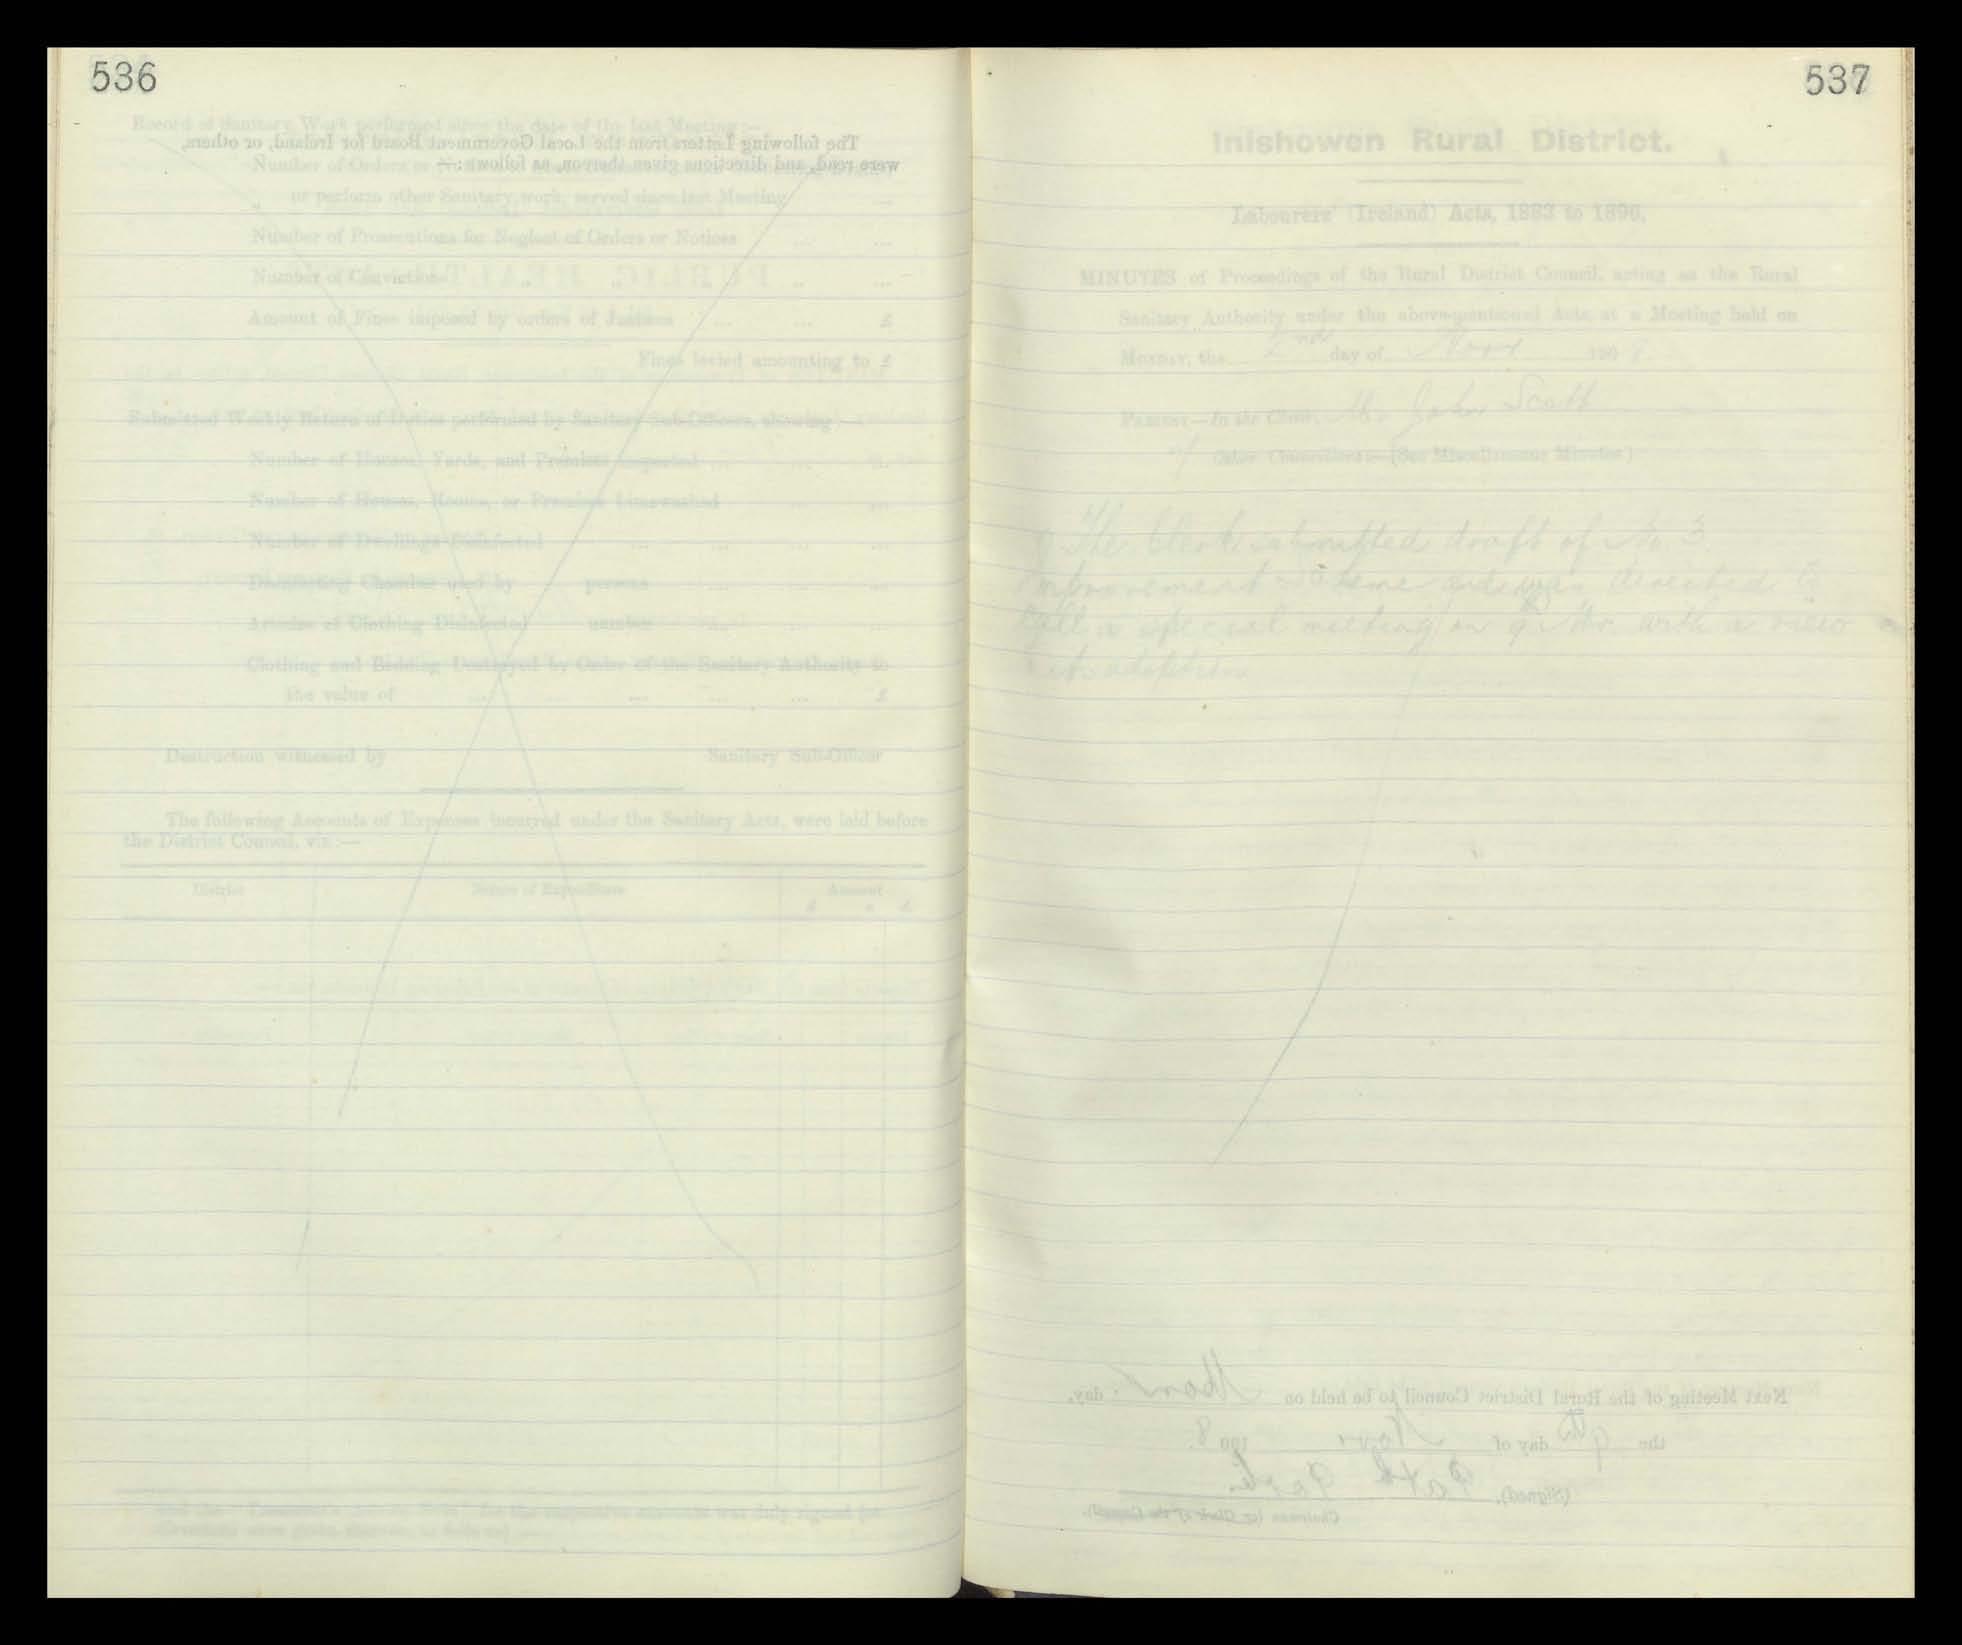 536
Record of Sanitary Work performed since the date of the last Meeting:—
The following Letters from the Local Government Board for Ireland, or others,
were read, and directions given thereon, as follows:—
Number of Orders or
„ or perform other Sanitary work, served since last Meeting ...
Number of Prosecutions for Neglect of Orders or Notices ... ...
PUBLIC HEALTH
Number of Convictions ... ...
Amount of Fines imposed by orders of Justices ... ... £
Fines levied amounting to £
Submitted Weekly Return of Duties performed by Sanitary Sub-Officers, showing:—
Number of Houses, Yards, and Premises inspected ... ... ...
Number of Houses, Rooms, or Premises Limewashed ... ...
Number of Dwellings Disinfected ... ... ... ...
Disinfecting Chamber used by persons ... ... ...
Articles of Clothing Disinfected number ... ... ...
Clothing and Bedding Destroyed by Order of the Sanitary Authority to
the value of ... ... ... ... ... £
Destruction witnessed by Sanitary Sub-Officer
The following Accounts of Expenses incurred under the Sanitary Acts, were laid before
the District Council, viz:—
District Nature of Expenditure Amount
£ s. d.
for the respective amounts was duly signed
537
Inishowen Rural District.
Labourers' (Ireland) Acts, 1883 to 1896.
MINUTES of Proceedings of the Rural District Council, acting as the Rural
Sanitary Authority under the above-mentioned Acts, at a Meeting held on
Monday, the 2nd day of Novr 190 8.
Present—In the Chair, Mr John Scott
Other Councillors:—(See Miscellaneous Minutes)
The Clerk submitted draft of No. 3
Improvement Scheme and was directed to
Call a special meeting on 9th with a view
adoption
Next Meeting of the Rural District Council to be held on Mon day,
the 9th day of Novr 190 8.
(Signed),
Chairman (or Clerk of the Council).